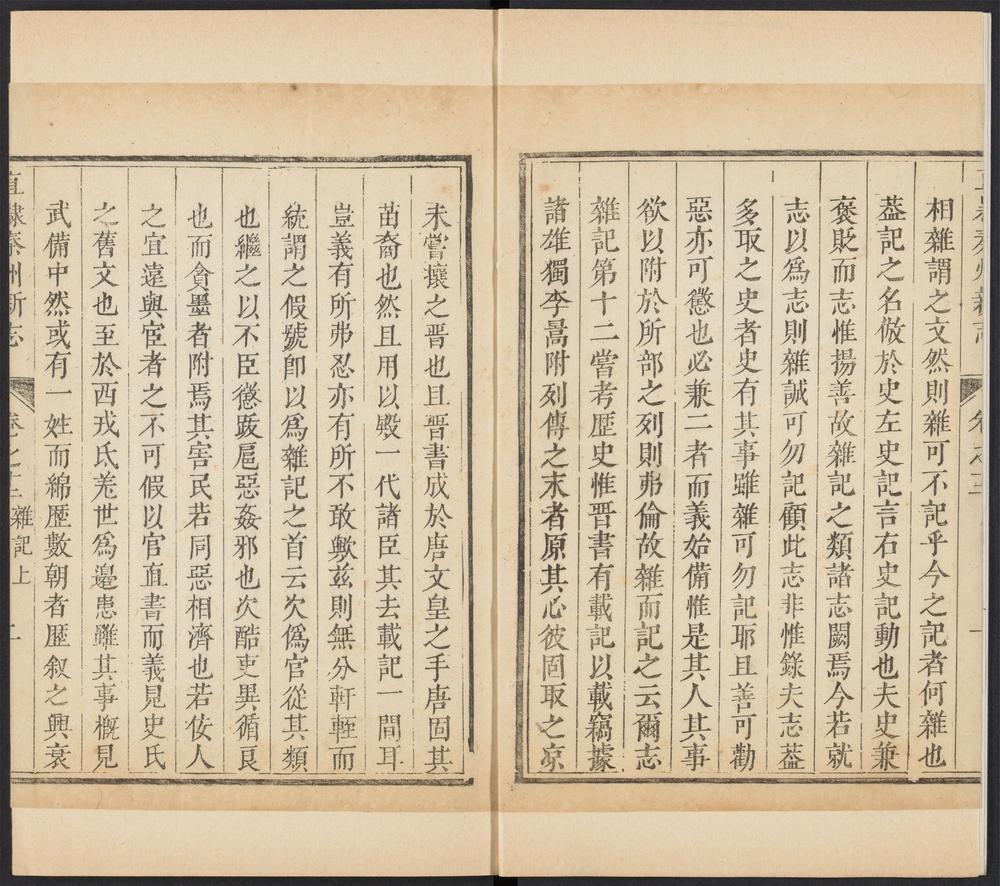 相雜謂之文然則雜可不記乎今之記者何雜也
葢記之名倣於史左史記言右史記動也夫史兼
褒貶而志惟揚善故雜記之類諸志闕焉今若就
志以爲志則雜誠可勿記顧此志非惟錄夫志葢
多取之史者史有其事雖雜可勿記耶且善可勸
惡亦可懲也必兼二者而義始備惟是其人其事
欲以附於所部之列則弗倫故雜而記之云爾志
雜記第十二嘗考歷史惟晋書有載記以載竊據
諸雄獨李暠附列傳之末者原其心彼固取之凉
未嘗攘之晋也且晋書成於唐文皇之手唐固其
苗裔也然且用以殿一代諸臣其去載記一間耳
豈義有所弗忍亦有所不敢歟兹則無分軒輊而
統謂之假號卽以爲雜記之首云次僞官從其類
也繼之以不臣懲跋扈惡姦邪也次酷吏異循良
也而貪墨者附焉其害民若同惡相濟也若佞人
之宜遠與宦者之不可假以官直書而義見史氏
之舊文也至於西戎氐羗世爲邉患雖其事槪見
武備中然或有一姓而綿歷數朝者歷叙之興衰
直隸秦州新志 卷之十二 雜記上 一